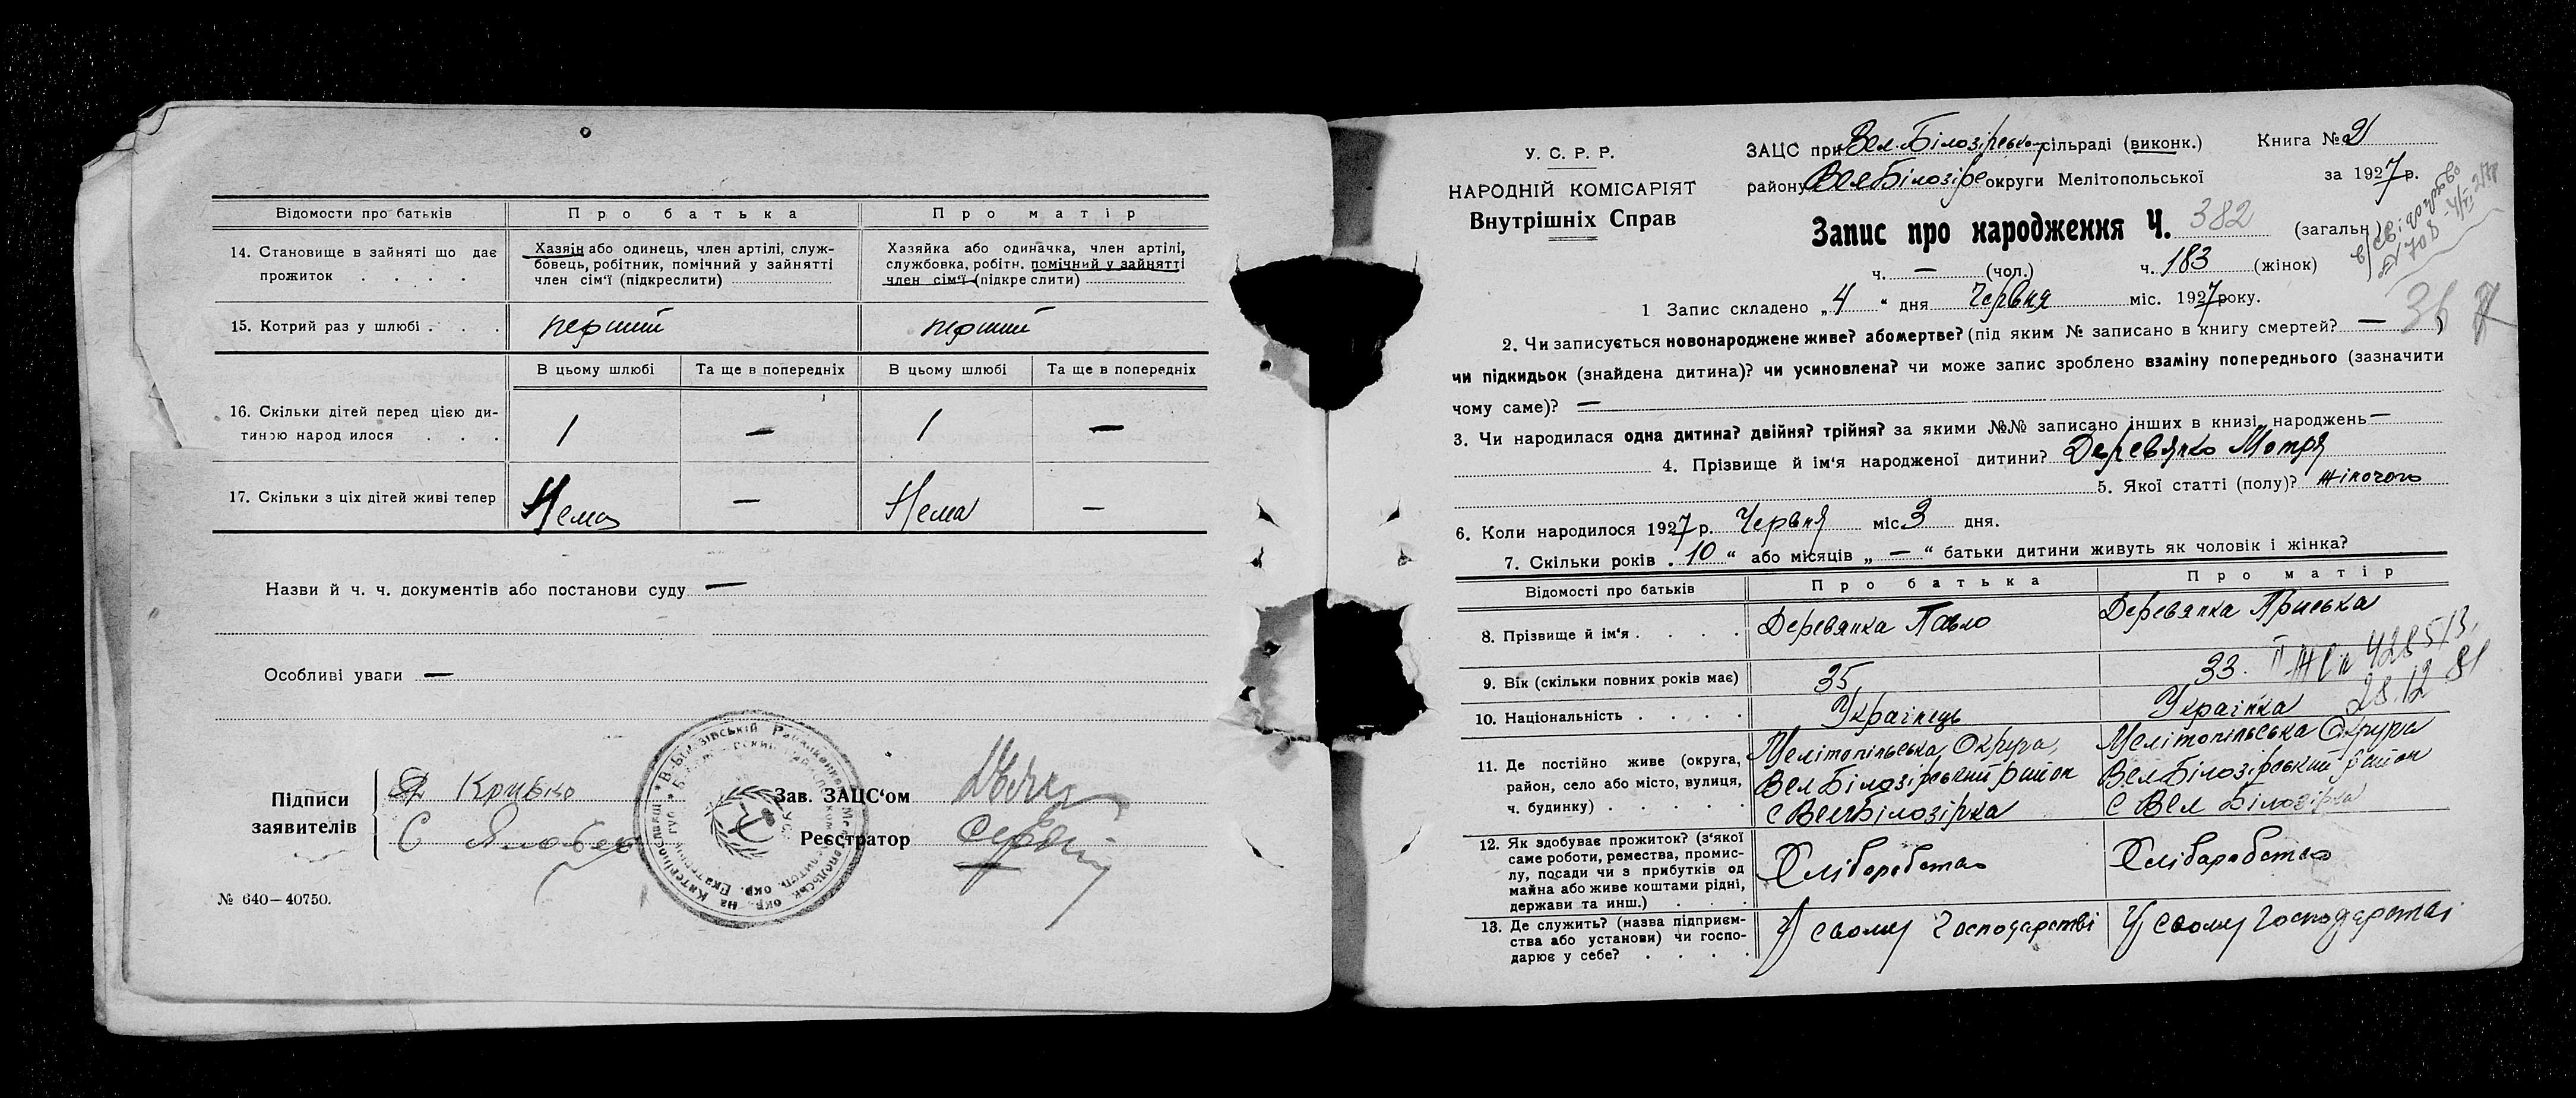 Відомости про батьків
Про батька
Про матір
14. Становище в зайняті що дає прожиток . . . .
Хазяїн або одинець, член артілі, служ-
бовець, робітник, помічний у зайнятті
член сім'ї (підкреслити)
Хазяйка або одиначка, член артілі,
службовка, робітн. помічний у зайнятті
член сім'ї (підкреслити)
15. Котрий раз у шлюбі . . .
перший
перший
В цьому шлюбі
Та ще в попередніх
В цьому шлюбі
Та ще в попередніх
16. Скільки дітей перед цією ди-
тиною народилося . . .
1 — 1 —
17. Скільки з ціх дітей живі тепер
Нема — Нема —
Назви й ч. ч. документів або постанови суду —
Особливі уваги —
Підписи
заявителів
Кривко
С
Зав. ЗАЦС'ом
Реєстратор
№ 640—40750.
У. С. Р. Р.
НАРОДНІЙ КОМІСАРІЯТ
Внутрішніх Справ
ЗАЦС при Вел. Білозірській сільраді (виконк.)
Книга № 2
району Вел Білозірс округи Мелітопольської
за 1927 р.
Запис про народження Ч. 382 (загальн.)
ч. — (чол.) ч. 183 (жінок)
1 Запис складено „4" дня Червня міс. 1927 року.
2. Чи записується новонароджене живе? або мертве? (під яким № записано в книгу смертей? — )
чи підкидьок (знайдена дитина)? чи усиновлена? чи може запис зроблено взаміну попереднього (зазначити
чому саме)? —
3. Чи народилася одна дитина? двійня? трійня? за якими №№ записано інших в книзі народжень —
4. Прізвище й ім'я народженої дитини? Деревянко Мотря
5. Якої статті (полу)? жіночого
6. Коли народилося 1927 р. Червня міс 3 дня.
7. Скільки років „10" або місяців „—" батьки дитини живуть як чоловік і жінка?
Відомості про батьків
Про батька
Про матір
8. Прізвище й ім'я . . . .
Деревянка Павло
Деревянка Приська
9. Вік (скільки повних років має)
35
33.
28.12 81
10. Національність . . . .
Українець
Українка
11. Де постійно живе (округа,
район, село або місто, вулиця,
ч. будинку) . . . . .
Мелітопільська Округа,
Вел Білозірський район
с Вел Білозірка
Мелітопільська Округа
Вел Білозірський район
с Вел Білозірка
12. Як здобуває прожиток? (з'якої
саме роботи, ремества, промис-
лу, посади чи з прибутків од
майна або живе коштами рідні,
держави та инш.) . . .
Хліборобство
Хліборобство
13. Де служить? (назва підприєм-
ства або установи) чи госпо-
дарює у себе? . . . .
У своему господарстві
У своему господарстві